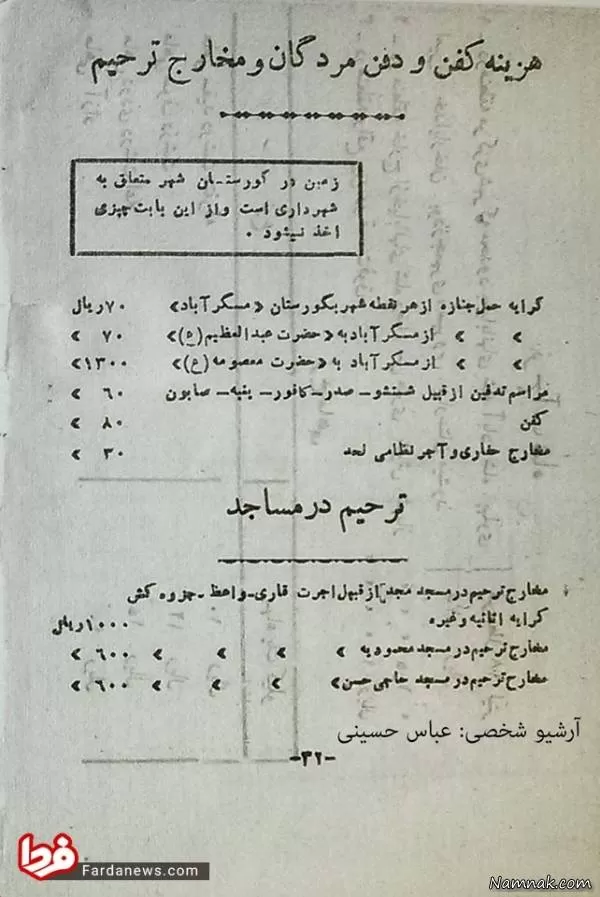 هزینه کفن و دفن مردگان و مخارج ترحیم
زمین در گورستان شهر متعلق به
شهرداری است و از این بابت چیزی
اخذ نمیشود .
کرایه حمل جنازه از هر نقطه شهر بگورستان «مسگر آباد» ۷۰ ریال
» » از مسگر آباد به «حضرت عبدالعظیم (ع)» ۷۰ »
» » از مسگر آباد به «حضرت معصومه (ع)» ۱۳۰۰ »
مراسم تدفین از قبیل شستشو - صدر - کافور - پنبه - صابون ۶۰ »
کفن ۸۰ »
مخارج حفاری و آجر نظامی لحد ۳۰ »
ترحیم در مساجد
مخارج ترحیم در مسجد مجد از قبیل اجرت قاری - واعظ - جزوه کش
کرایه اثاثیه و غیره ۱۰۰۰ ریال
مخارج ترحیم در مسجد محمودیه » » » » ۶۰۰ »
مخارج ترحیم در مسجد حاجی حسن » » » » ۶۰۰ »
آرشیو شخصی: عباس حسینی
-۳۲-
فردا
Fardanews.com
Namnak.com